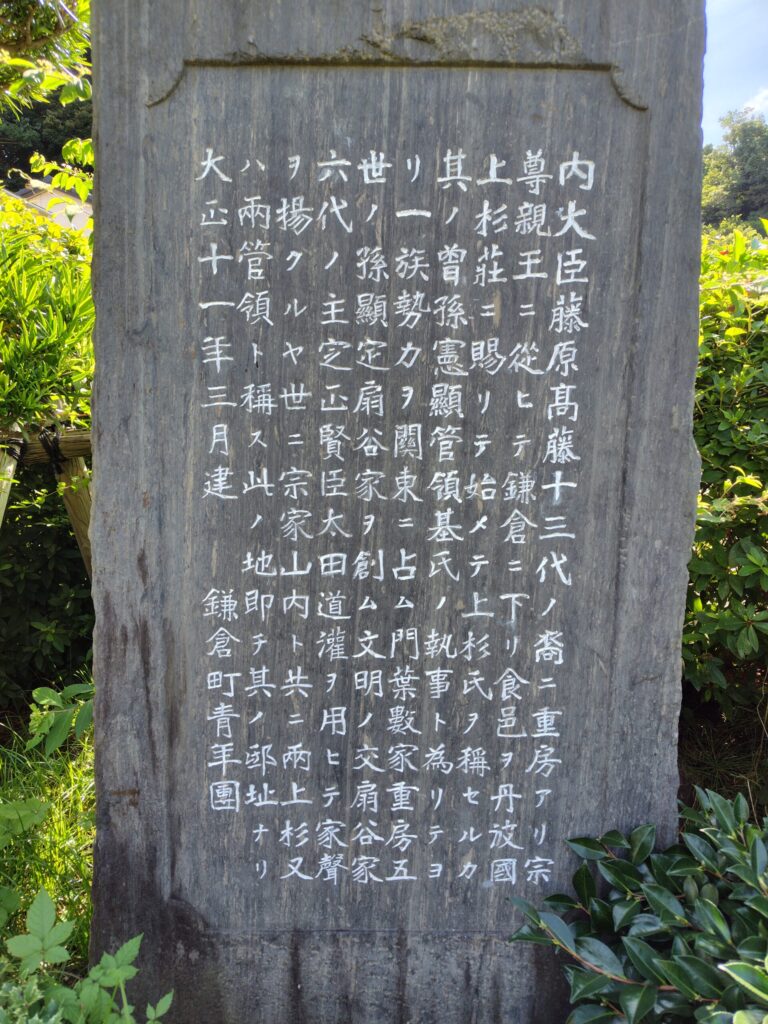 内大臣藤原高藤十三代ノ裔ニ重房アリ宗
尊親王ニ從ヒテ鎌倉ニ下リ食邑ヲ丹波國
上杉莊ニ賜リテ始メテ上杉氏ヲ稱セルカ
其ノ曾孫憲顯管領基氏ノ執事ト為リテヨ
リ一族勢力ヲ関東ニ占ム門葉數家重房五
世ノ孫顯定扇谷家ヲ創ム文明ノ交扇谷家
六代ノ主定正賢臣太田道灌ヲ用ヒテ家聲
ヲ揚クルヤ世ニ宗家山内ト共ニ兩上杉又
ハ兩管領ト稱ス此ノ地即チ其ノ邸址ナリ
大正十一年三月建 鎌倉町青年團